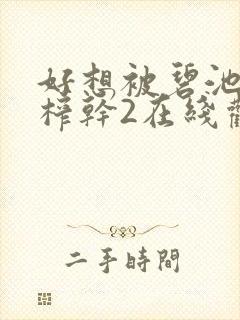 好想被碧池
榨幹2在綫
二手時間